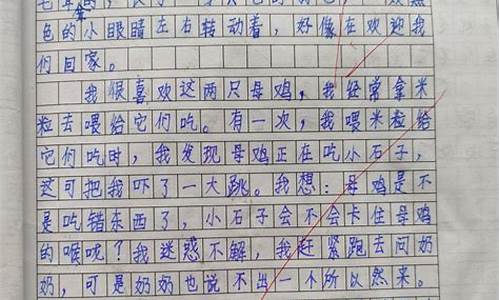 色的小眼睛左右转动着，好像在欢迎我
们回家。
我很喜欢这两只母鸡，我经常拿米
粒去喂给它们吃。有一次，我喂米粒给
它们吃时，我发现母鸡正在吃小石子，
这可把我吓了一大跳。我想：母鸡是不
是吃错东西了，小石子会不会卡住母鸡
的喉咙？我迷惑不解，我赶紧跑去问奶
奶，可是奶奶也说不出一个所以然来。